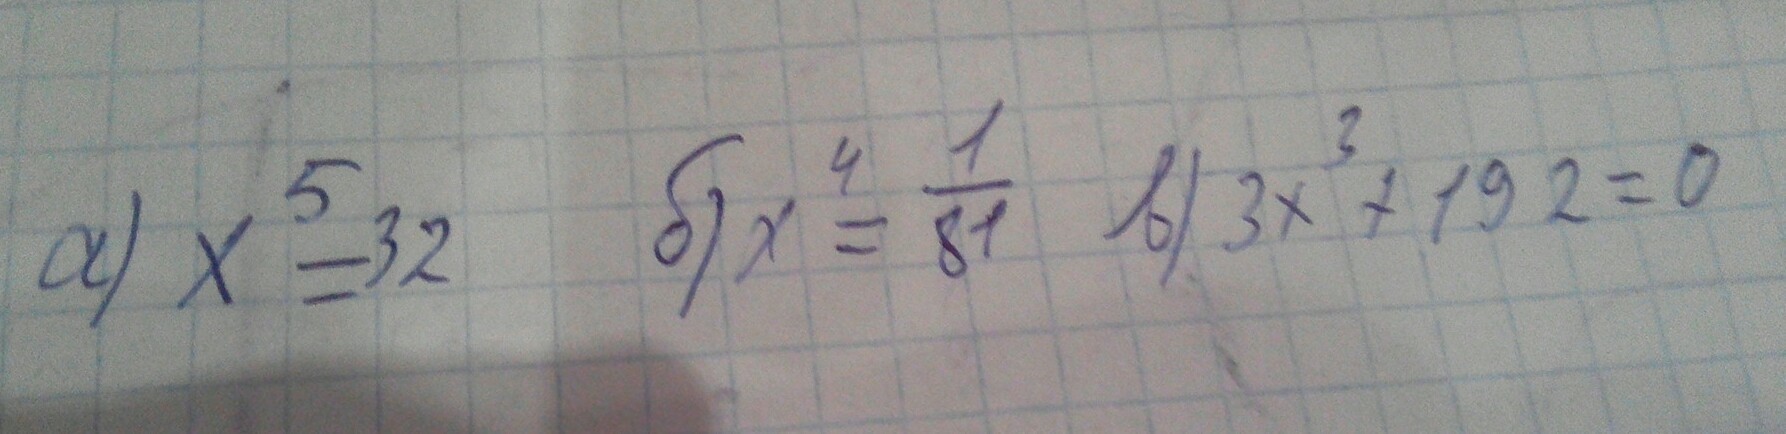 а) x⁵=32 б) x⁴=1/81 в) 3x³+192=0